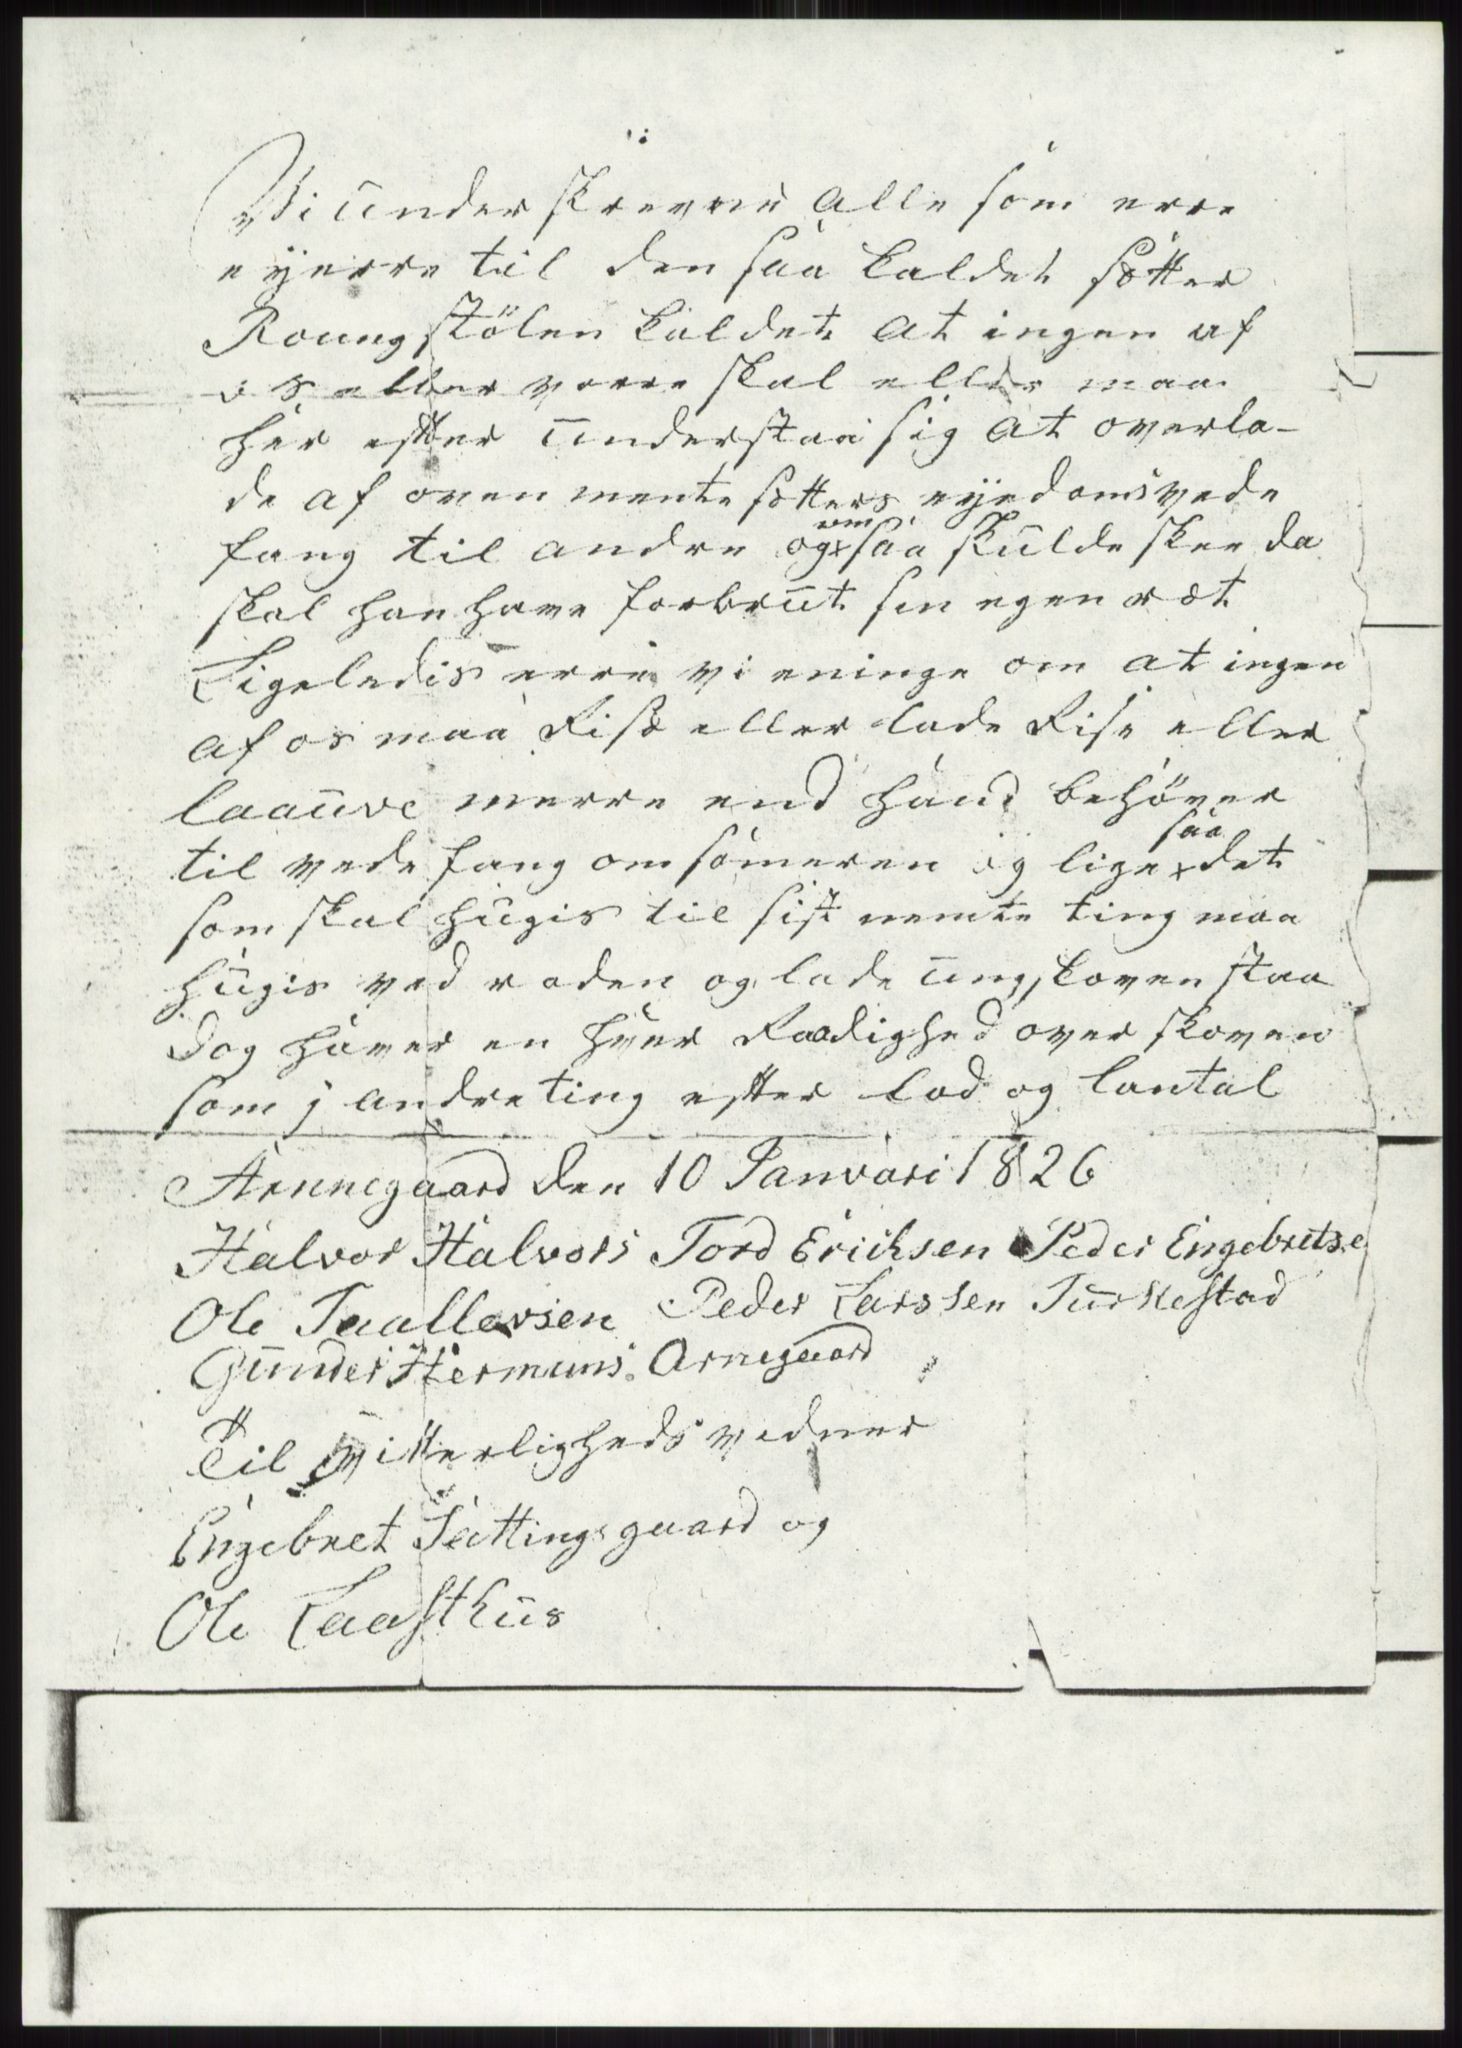 Vi under skrevne alle som erre
eyerre til den saa kaldet sætter
Roungstölen kaldet at ingen af
os eller vorre skal eller maa
her efter understaa sig at overla-
de af oven mente sætters eyedoms vede
fang til andre og om saa skulde skee da
skal han have forbrut sin egen ræt
Ligeledis erre vi eninge om at ingen
af os maa Rise eller lade Rise eller
laauve merre end hand behöver
til vede fang om someren og lige saa det
som skal hugis til sist nemte ting maa
hugis ved roden og lade ungskoven staa
dog haver en hver Raadighed over skoven
som j andre ting efter lod og lantal
Arnnegaard den 10 Januari 1826
Halvor Halvors Tord Erichsen Peder Engebretse
Ole Taallevsen Peder Larssen Turkestad
Gunder Hermuns. Arnegaard
Til vitterligheds vedner
Engebret Sættingsgaard og
Ole Laasthus